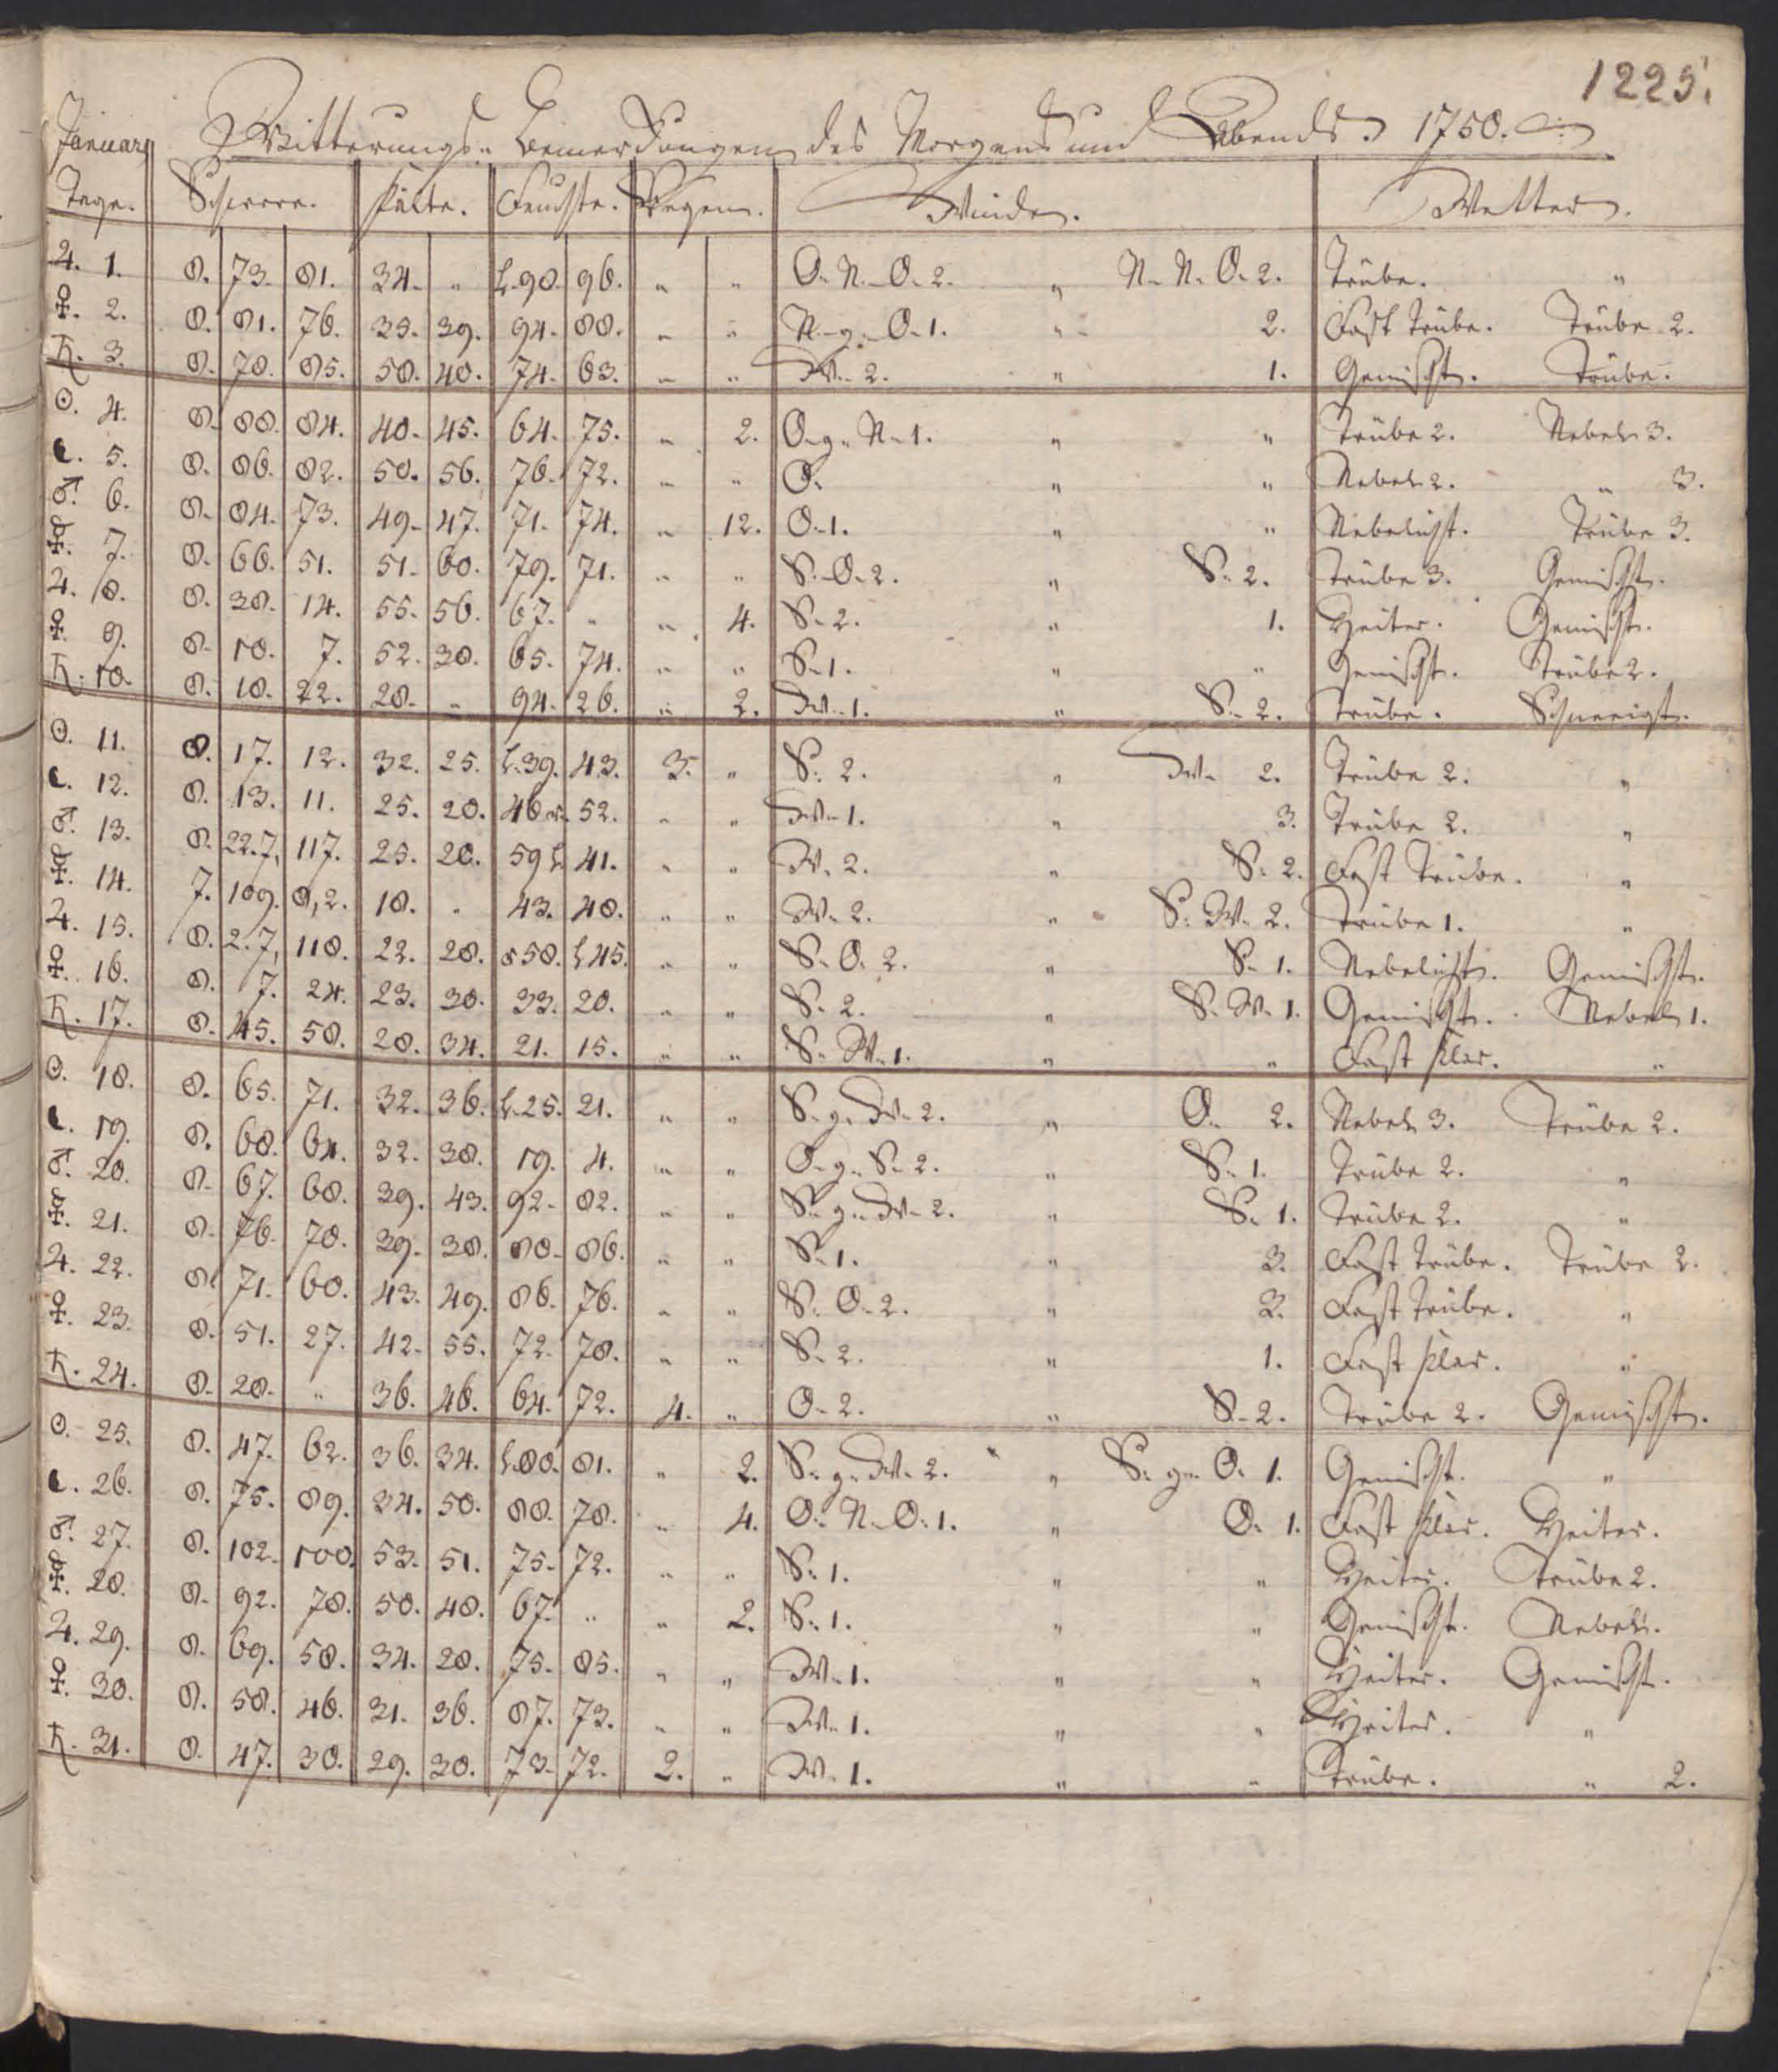 1225.
Januar Witterungs-Bemerkungen des Morgens und Abends. 1750.
Tage. Schwere. Kälte. Feuchte. Regen. Winde. Wetter.
♃. 1. 8. 73. 81. 34. " L. 98. 96. " " O.N.O.2. " N.N.O.2. Trübe. "
♀. 2. 8. 81. 76. 35. 39. 94. 88. " " N.g.O.1. " 2. Fast Trübe. Trübe 2.
♄. 3. 8. 78. 85. 58. 48. 74. 63. " " W.2. " 1. Gemischt. Trübe.
☉. 4. 8. 88. 84. 48. 45. 64. 75. " 2. O.g.N.1. " " Trübe 2. Nebel 3.
☾. 5. 8. 86. 82. 50. 56. 76. 72. " " O. " " Nebel 2. " 3.
♂. 6. 8. 84. 73. 49. 47. 71. 74. " 12. O.1. " " Nebelicht. Trübe 3.
☿. 7. 8. 66. 51. 51. 60. 79. 71. " " S.O.2. " S.2. Trübe 3. Gemischt.
♃. 8. 8. 38. 14. 55. 56. 67. " " 4. S.2. " 1. Heiter. Gemischt.
♀. 9. 8. 10. 7. 52. 38. 65. 74. " " S.1. " " Gemischt. Trübe 2.
♄. 10. 8. 18. 22. 28. " 94. 26. " 2. W.1. " S.2. Trübe. Schneeigt.
☉. 11. 8. 17. 12. 32. 25. L.39. 43. 3. " S.2. " W. 2. Trübe 2. "
☾. 12. 8. 13. 11. 25. 20. 48 52. " " W.1. " 3. Trübe 2. "
♂. 13. 8. 22.7, 117. 25. 20. 59 L 41. " " W.2. " S.2. Fast Trübe. "
☿. 14. 7. 109. 8,2. 18. " 43. 48. " " W.2. " S.W.2. Trübe 1. "
♃. 15. 8. 2.7, 118. 22. 28. 58. L45. " " S.O.2. " S.1. Nebelicht. Gemischt.
♀. 16. 8. 7. 24. 23. 30. 33. 20. " " S.2. " S.W.1. Gemischt. Nebel 1.
♄. 17. 8. 45. 58. 28. 34. 21. 15. " " S.W.1. " " Fast klar. "
☉. 18. 8. 65. 71. 32. 36. L.25. 21. " " S.g.W.2. " O. 2. Nebel 3. Trübe 2.
☾. 19. 8. 68. 64. 32. 38. 19. 4. " " O.g.S.2. " S.1. Trübe 2. "
♂. 20. 8. 67. 68. 39. 43. 92. 82. " " S.g.W.2. " S.1. Trübe 2. "
☿. 21. 8. 76. 78. 39. 38. 80. 86. " " S.1. " 3. Fast Trübe. Trübe 2.
♃. 22. 8. 71. 60. 43. 49. 86. 76. " " S.O.2. " 3. Fast Trübe. "
♀. 23. 8. 51. 27. 42. 55. 72. 78. " " S.2. " 1. Fast klar. "
♄. 24. 8. 28. " 36. 46. 64. 72. 4. " O.2. " S.2. Trübe 2. Gemischt.
☉. 25. 8. 47. 62. 36. 34. L.80. 81. " 2. S.g.W.2. " S.g.O.1. Gemischt. "
☾. 26. 8. 75. 89. 34. 50. 88. 78. " 4. O.N.O.1. " O.1. Fast klar. Heiter.
♂. 27. 8. 102. 100. 53. 51. 75. 72. " " S.1. " " Heiter. Trübe 2.
☿. 28. 8. 92. 78. 50. 48. 67. " " 2. S.1. " " Gemischt. Nebel.
♃. 29. 8. 69. 58. 34. 28. 75. 85. " " W.1. " " Heiter. Gemischt.
♀. 30. 8. 58. 46. 31. 36. 87. 73. " " W.1. " " Heiter. "
♄. 31. 8. 47. 30. 29. 30. 73. 72. 2. " W.1. " " Trübe. " 2.